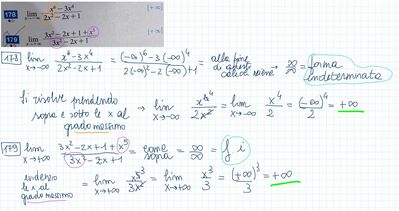 178 lim x→-∞ x⁶-3x⁴ / 2x²-2x+1 [+∞]
179 lim x→+∞ 3x²-2x+1+x⁵ / 3x²-2x+1 [+∞]
178 lim x→-∞ x⁶-3x⁴ / 2x²-2x+1 = (-∞)⁶-3(-∞)⁴ / 2(-∞)²-2(-∞)+1 = alla fine di questi calcoli viene → ∞/∞ = forma indeterminata
Si risolve prendendo sopra e sotto le x al grado massimo → lim x→-∞ x⁶/2x² = lim x→-∞ x⁴/2 = (-∞)⁴/2 = +∞
179 lim x→+∞ 3x²-2x+1+x⁵ / 3x²-2x+1 = come sopra = ∞/∞ = f i
le x al grado massimo = lim x→+∞ x⁵/3x² = lim x→+∞ x³/3 = (+∞)³/3 = +∞